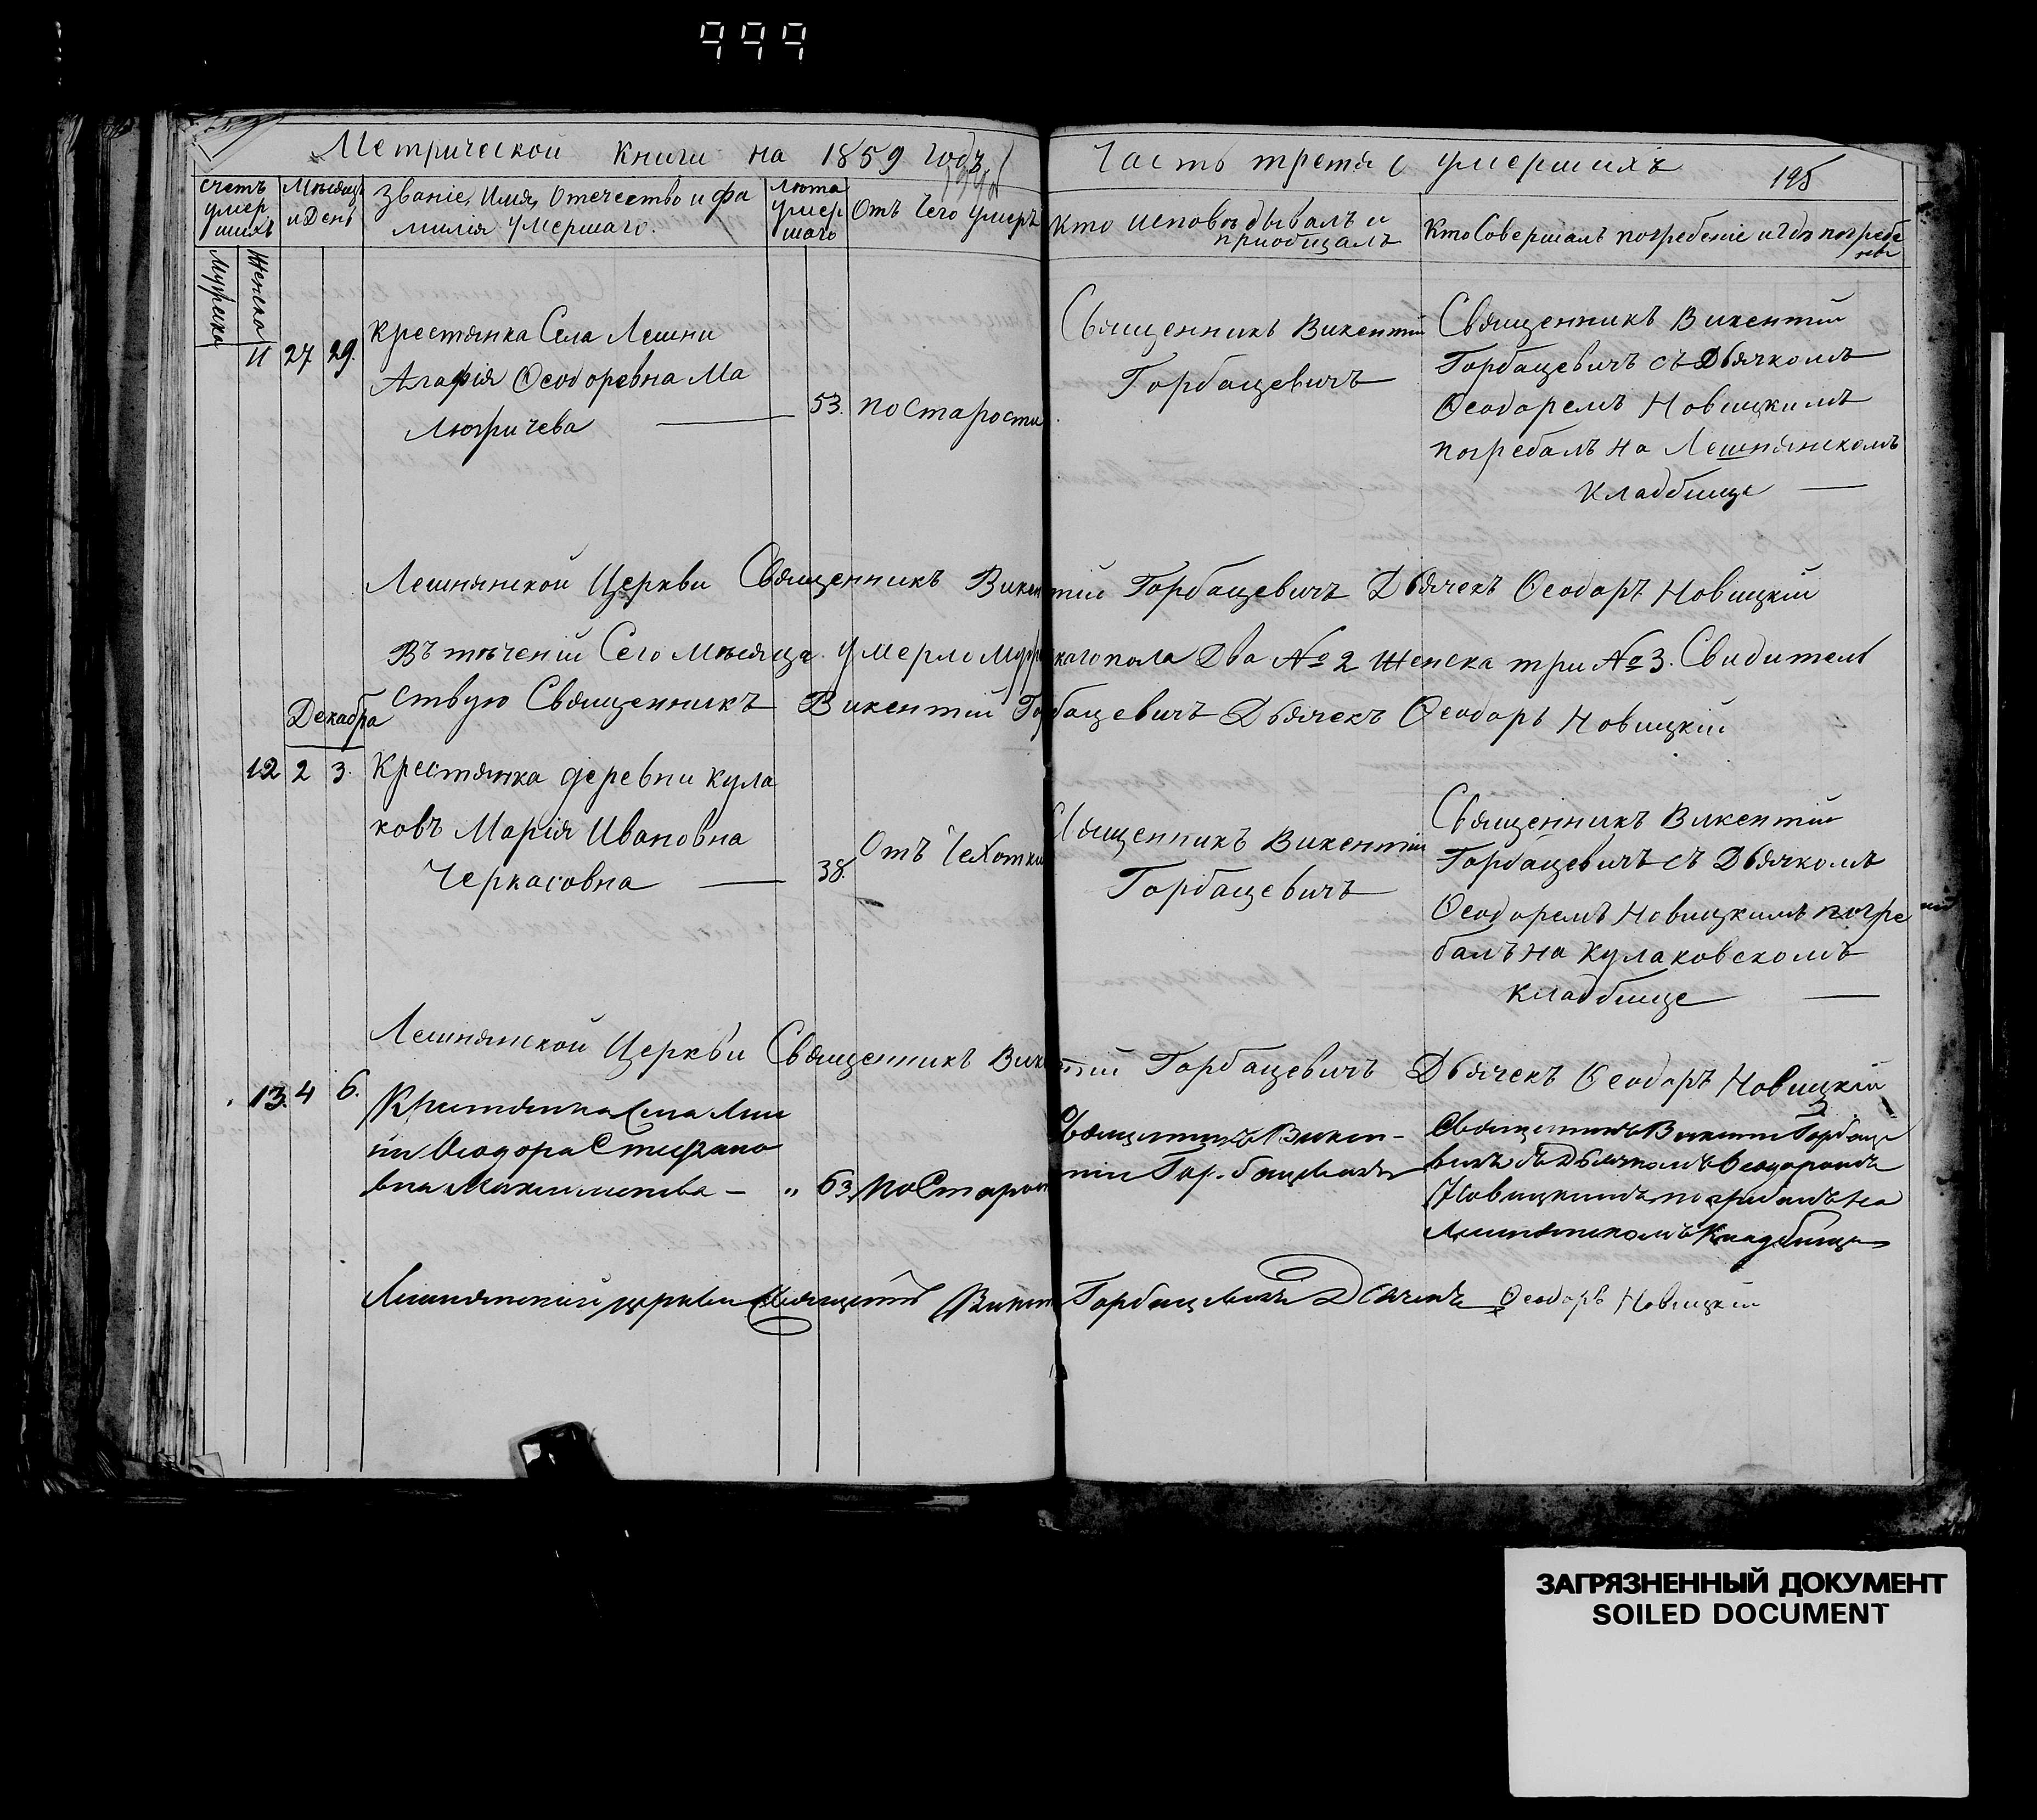 999
Метрической Книги на 1859 годъ
Часть третя о умершихъ
195
Счетъ умер шихъ
Мѣсяцъ и День
Званіе, Имя, Отечество и фа
милія умершаго.
Лѣта умер шаго
Отъ чего умеръ
Кто исповѣдывалъ и
приобщалъ
Кто Совершалъ погребеніе и гдѣ погребе
ны
Мужеска
Женска
11 27 29.
Крестянка Села Лешни
Агафія Ѳеодоревна Ма
люгричева
53. по Старости
Священникъ Викентій
Горбацевичъ
Священникъ Викентій
Горбацевичъ съ Дьячкомъ
Ѳеодоремъ Новицкимъ
погребалъ на Лешнянскомъ
кладбище
Лешнянской Церкви Священникъ Викентій Горбацевичъ Дьячекъ Ѳеодоръ Новицкій
Въ теченіи Сего Мѣсяца умерло Мужескаго пола Два №2 Женска три №3. Свидитель
ствую Священникъ Викентій Горбацевичъ Дьячекъ Ѳеодоръ Новицкій
Декабра
12 2 3.
Крестянка деревни Кула
ковъ Марія Ивановна
Черкасовна
38. Отъ Чехотки
Священникъ Викентій
Горбацевичъ
Священникъ Викентій
Горбацевичъ съ Дьячкомъ
Ѳеодоремъ Новицкимъ погре
балъ на Кулаковскомъ
кладбище
Лешнянской Церкви Священникъ Викентій Горбацевичъ Дьячекъ Ѳеодоръ Новицкій
13. 4 6.
Крестянка Села Леш
ни Ѳеодора Стефано
вна
" 63. по Старо
Священникъ Викен-
тій Горбацевичъ
Священникъ Викентій Горбаце
вичъ съ Дьячкомъ Ѳеодоромъ
Новицкимъ погребалъ на
Лешнянскомъ Кладбище
Лешнянской церкви Священникъ Викент Горбацевичъ Дьячекъ Ѳеодоръ Новицкій
ЗАГРЯЗНЕННЫЙ ДОКУМЕНТ
SOILED DOCUMENT